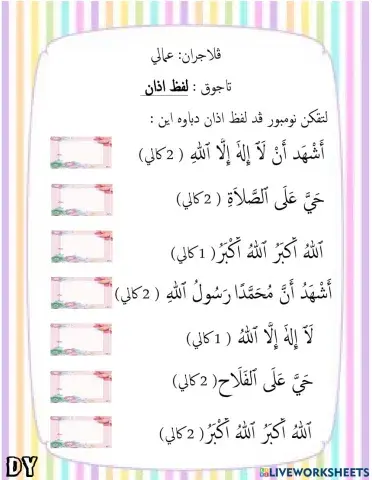 ڤلاجران: عمالي
تاجوق : لفظ اذان
لتقكن نومبور ڤد لفظ اذان دباوه اين :
أَشْهَد أَنْ لَآ إِلَهَ إِلَّا ٱللهِ ( 2 كالي)
حَيَّ عَلَى ٱلصَّلاَةِ ( 2 كالي)
ٱللهُ أَكبَرُ ٱللهُ أَكْبَرُ ( 1 كالي)
أَشْهَدُ أَنَّ مُحَمَّدًا رَسُولُ ٱللهِ ( 2 كالي)
لَآ إِلهَ إِلَّا ٱللهُ ( 1 كالي)
حَيَّ عَلَى ٱلفَلَاح( 2 كالي)
ٱللهُ أَكبَرُ ٱللهُ أَكْبَرُ ( 2 كالي)
DY
LIVEWORKSHEETS